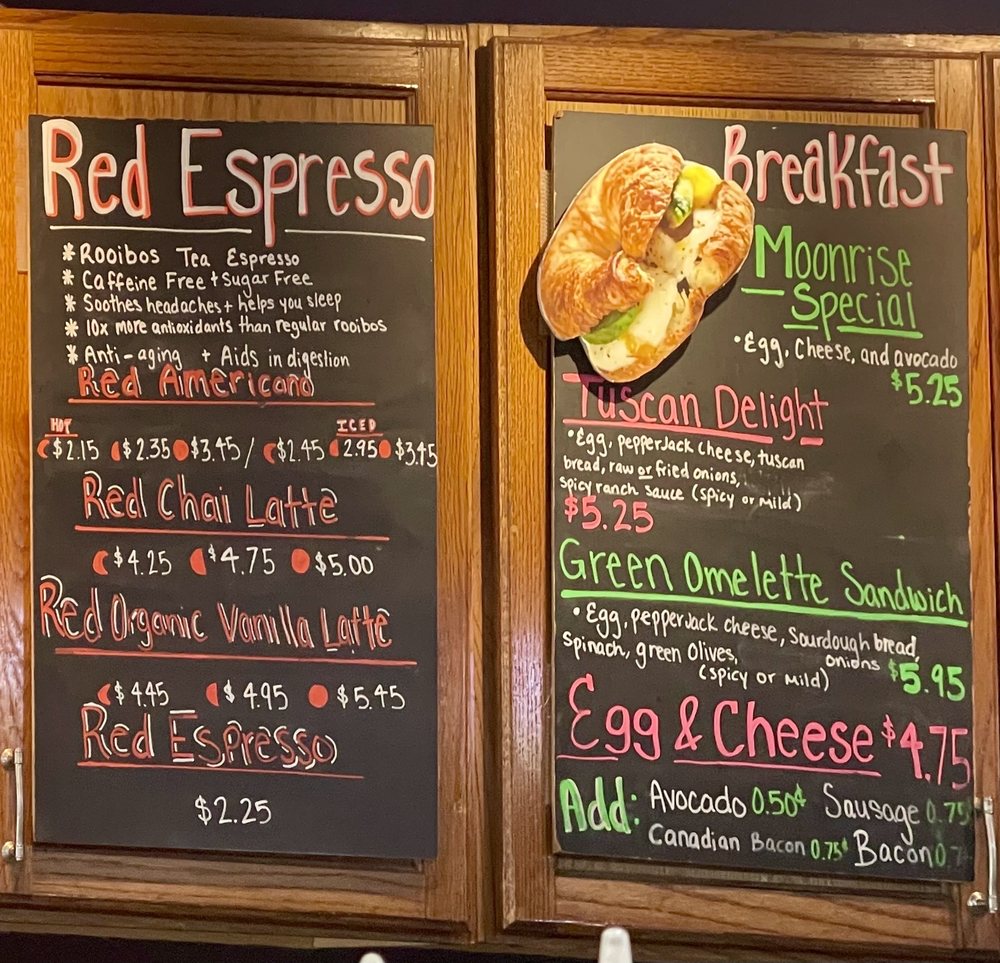 Red Espresso
* Rooibos Tea Espresso
* Caffeine Free + Sugar Free
* Soothes headaches + helps you sleep
* 10x more antioxidants than regular rooibos
* Anti-aging + Aids in digestion
Red Americano
HOT ICED
$2.15 $2.35 $3.45 / $2.45 2.95 $3.45
Red Chai Latte
$4.25 $4.75 $5.00
Red Organic Vanilla Latte
$4.45 $4.95 $5.45
Red Espresso
$2.25
Breakfast
Moonrise
Special
• Egg, Cheese, and avocado
$5.25
Tuscan Delight
• Egg, pepperJack cheese, tuscan
bread, raw or fried onions,
spicy ranch sauce (spicy or mild)
$5.25
Green Omelette Sandwich
• Egg, pepperJack cheese, Sourdough bread,
Spinach, green olives, onions $5.95
(spicy or mild)
Egg & Cheese $4.75
Add: Avocado 0.50¢ Sausage 0.75¢
Canadian Bacon 0.75¢ Bacon